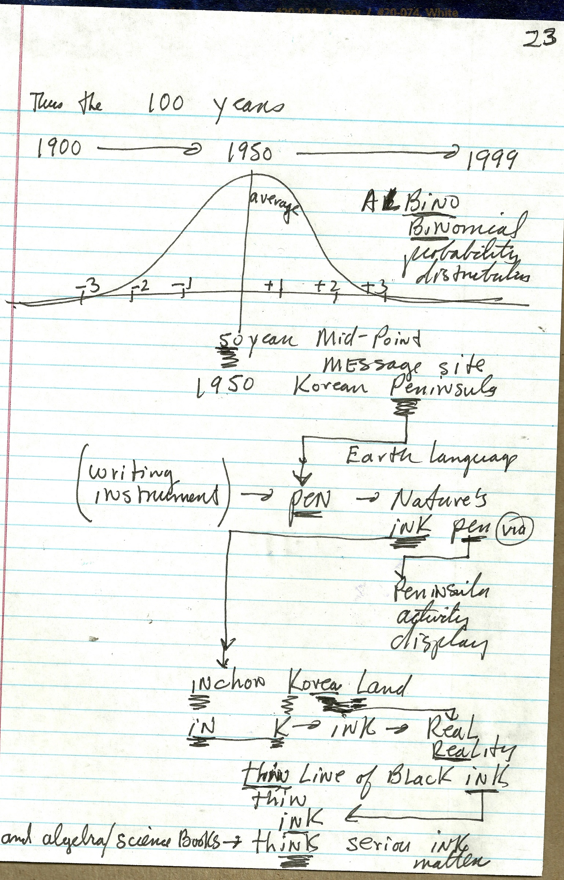 #20-024 Canary / #20-074 White
23
Thus the 100 years
1900 → 1950 → 1999
average
ALBiNO
BiNomial
probability
distribution
-3 -2 -1 +1 +2 +3
50 year Mid-Point
MESSage site
1950 Korean Peninsula
Earth language
(writing instrument) → pEN → Nature's
iNK pen (via)
Peninsula
activity
display
iNchon Korea Land
iN K → iNK → ReaL
ReaLity
thin Line of Black inK
thin
inK
and algebra/science Books → thinK serious ink
matter